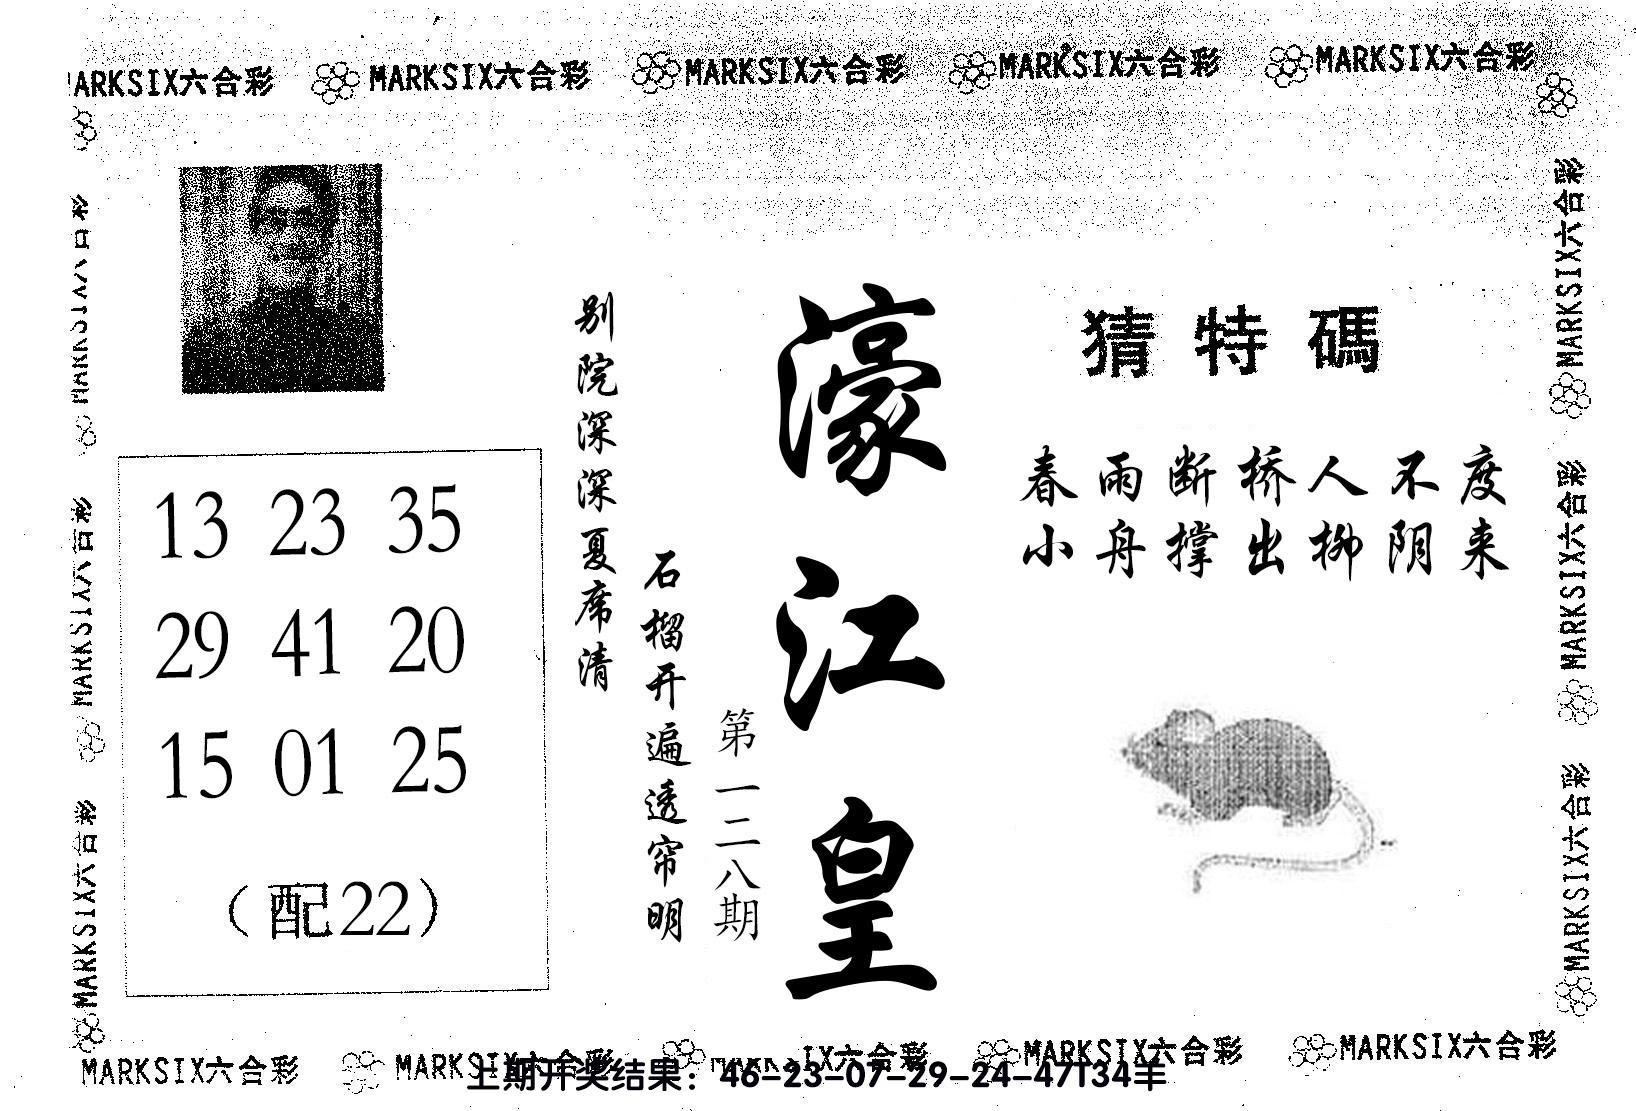 MARKSIX六合彩 MARKSIX六合彩 MARKSIX六合彩 MARKSIX六合彩
猜特碼
春雨断桥人不度
小舟撑出柳阴来
濠江皇
第一二八期
别院深深夏席清
石榴开遍透帘明
13 23 35
29 41 20
15 01 25
（配22）
MARKSIX六合彩
MARKSIX六合彩
MARKSIX六合彩
MARKSIX六合彩
MARKSIX六合彩
MARKSIX六合彩 MARKSIX六合彩 MARKSIX六合彩 MARKSIX六合彩
上期开奖结果：46-23-07-29-24-47T34羊